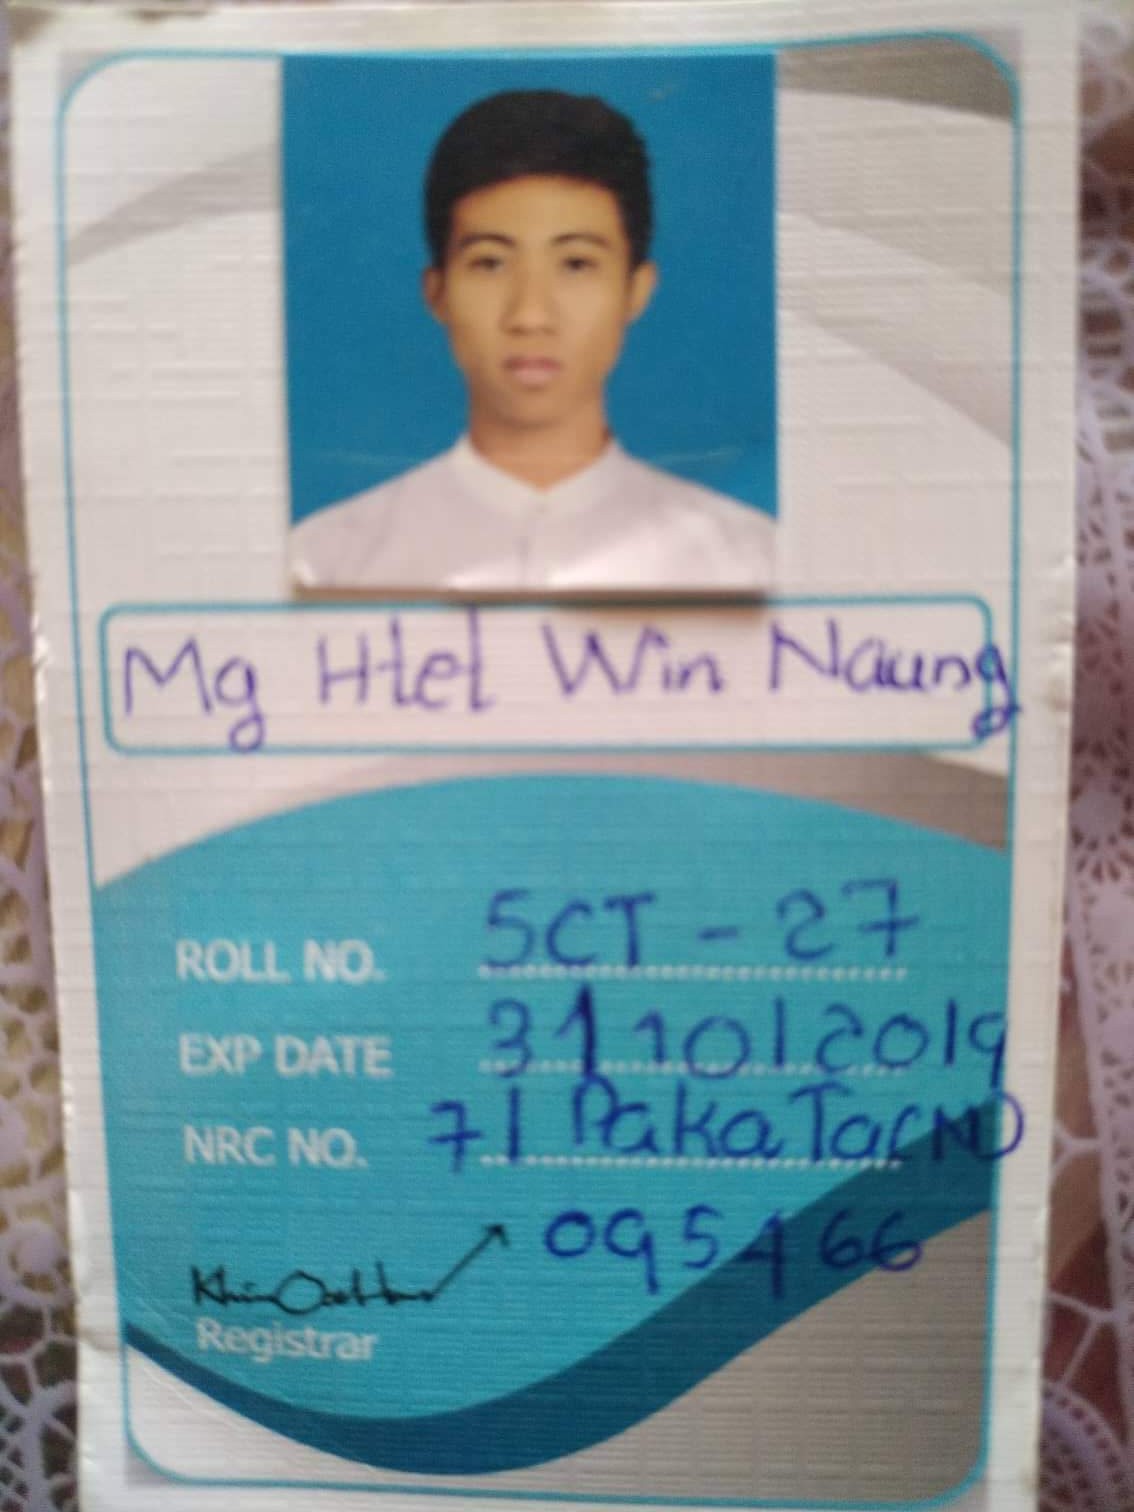 Mg Htet Win Naung
ROLL NO. 5CT - 27
EXP DATE 31 10 | 2019
NRC NO. 7 | PaKa Ta (N)
095466
Registrar